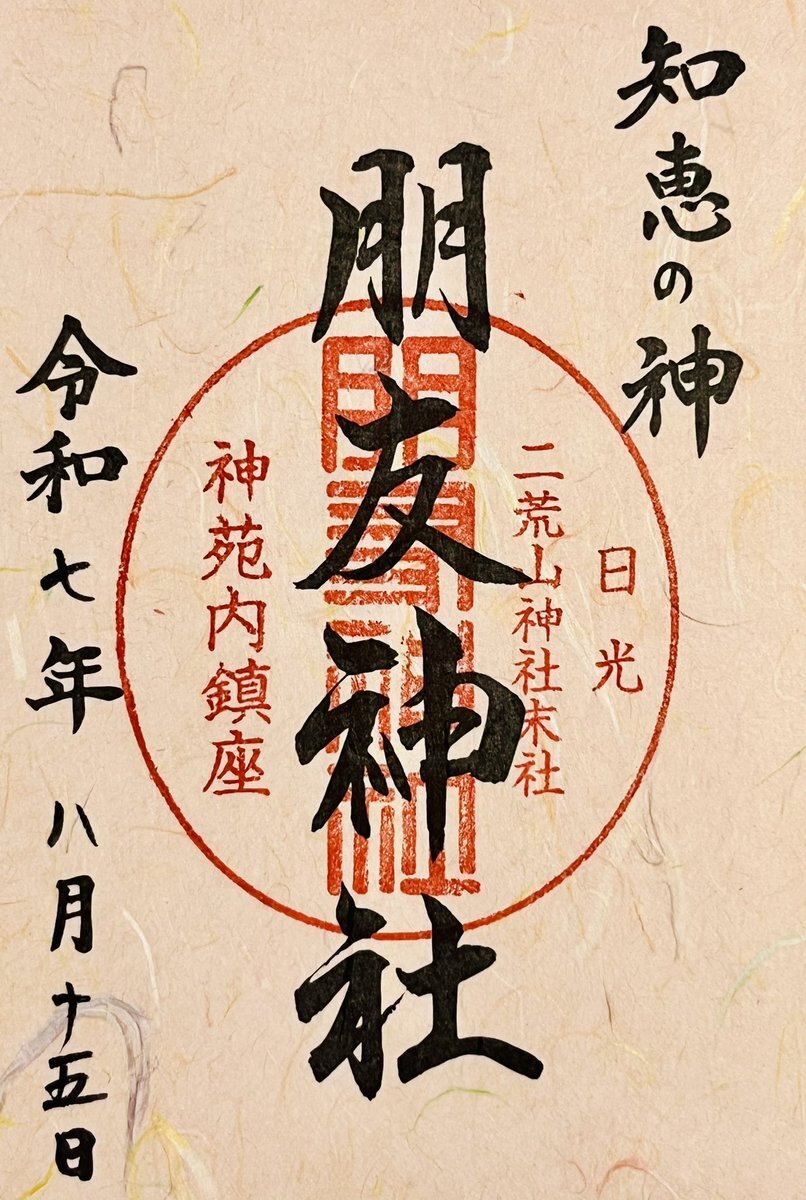 知恵の神
日光
二荒山神社末社
朋友神社
神苑内鎮座
令和七年 八月十五日